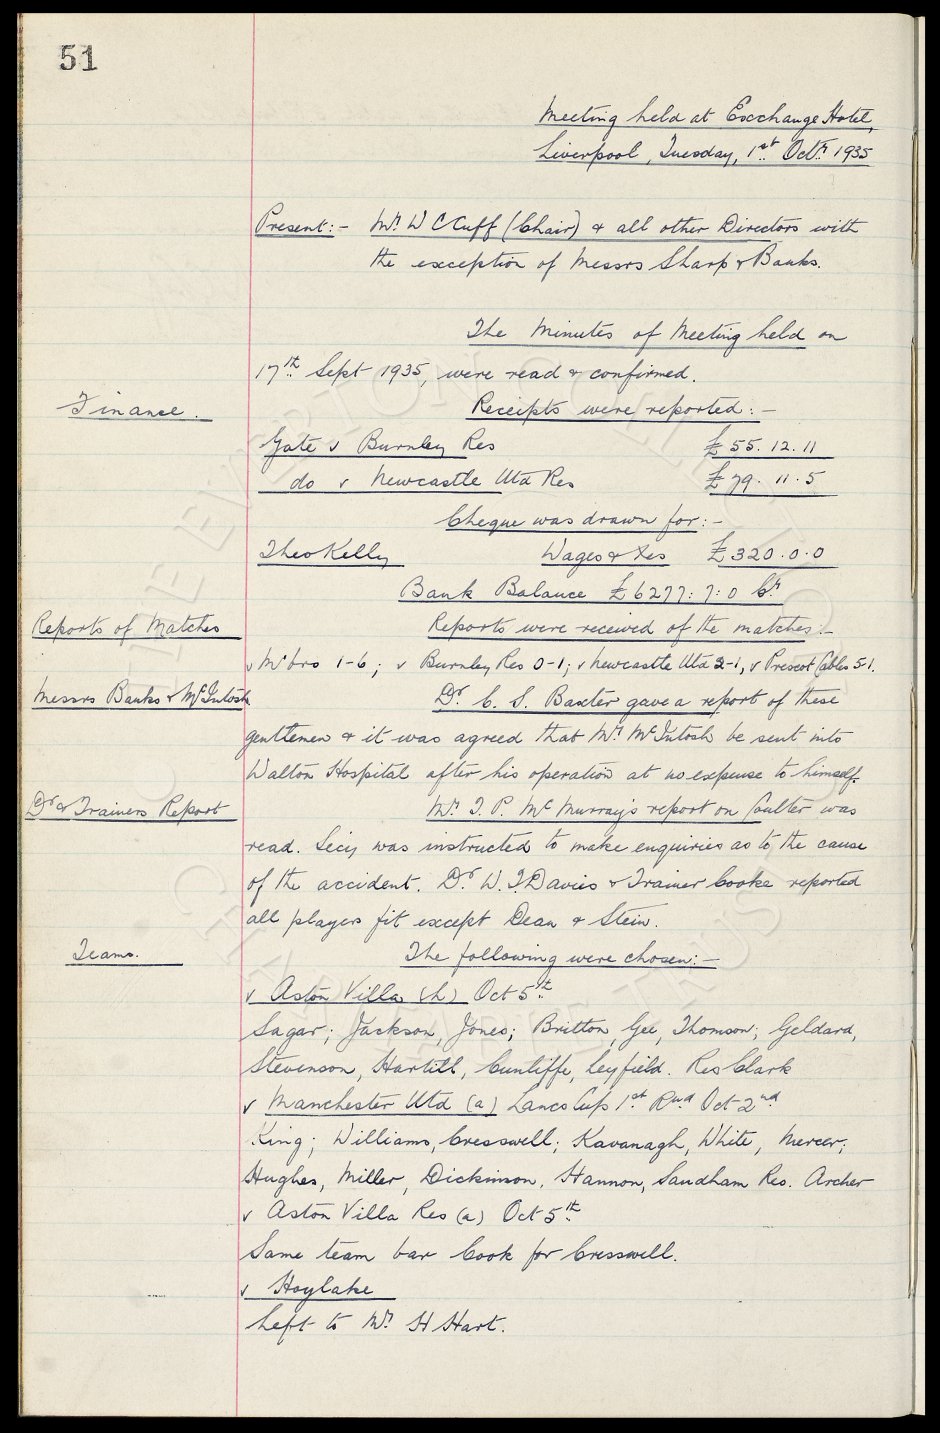 51
Meeting held at Exchange Hotel,
Liverpool, Tuesday, 1st Octr 1935
Present:- Mr W C Cuff (Chair) & all other Directors with
the exception of Messrs Sharp & Banks.
The Minutes of Meeting held on
17th Sept 1935, were read & confirmed.
Finance. Receipts were reported:-
Gate v Burnley Res £55.12.11
do v Newcastle Utd Res £79.11.5
Cheque was drawn for:-
Theo Kelly Wages & Xes £320.0.0
Bank Balance £6277:7:0 Cr
Reports of Matches Reports were received of the matches:-
v M'bro 1-6; v Burnley Res 0-1; v Newcastle Utd 2-1, v Prescot Cables 5-1.
Messrs Banks & McIntosh. Dr. C. S. Baxter gave a report of these
gentlemen & it was agreed that Mr McIntosh be sent into
Walton Hospital after his operation at no expense to himself.
Dr & Trainers Report Mr T. P. McMurray's report on Coulter was
read. Secy was instructed to make enquiries as to the cause
of the accident. Dr. W. T. Davies & Trainer Cooke reported
all players fit except Dean & Stein.
Teams. The following were chosen:-
v Aston Villa (h) Oct 5th
Sagar; Jackson, Jones; Britton, Gee, Thomson; Geldard,
Stevenson, Hartill, Cunliffe, Leyfield. Res Clark
v Manchester Utd (a) Lancs Cup 1st Rnd Oct 2nd
King; Williams, Cresswell; Kavanagh, White, Mercer;
Hughes, Miller, Dickinson, Hannon, Sandham Res. Archer
v Aston Villa Res (a) Oct 5th
Same team bar Cook for Cresswell.
v Hoylake
Left to Mr H Hart.